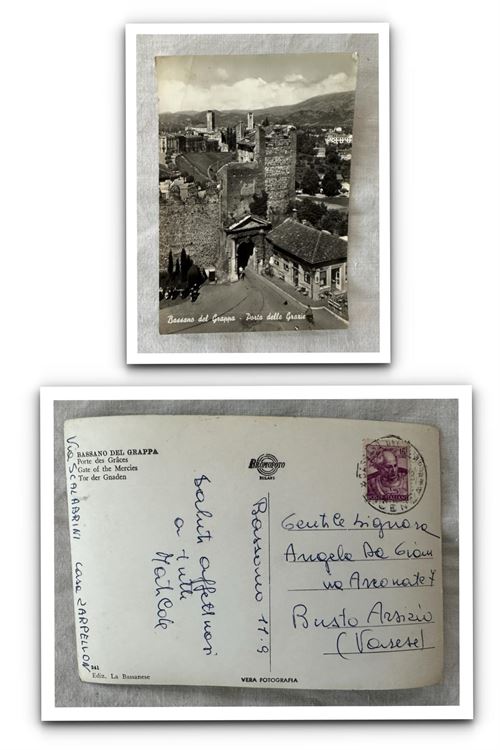 Bassano del Grappa - Porta delle Grazie
BASSANO DEL GRAPPA
Porte des Grâces
Gate of the Mercies
Tor der Gnaden
Via SCALABRINI casa ZARPELLON
Saluti affettuosi
a tutti
Matilde
Bassano 11.9
BROMOFOTO
MILANO
15
POSTE ITALIANE
Gentile Signora
Angela Da Gian
via Arconate 7
Busto Arsizio
(Varese)
241
Ediz. La Bassanese
VERA FOTOGRAFIA